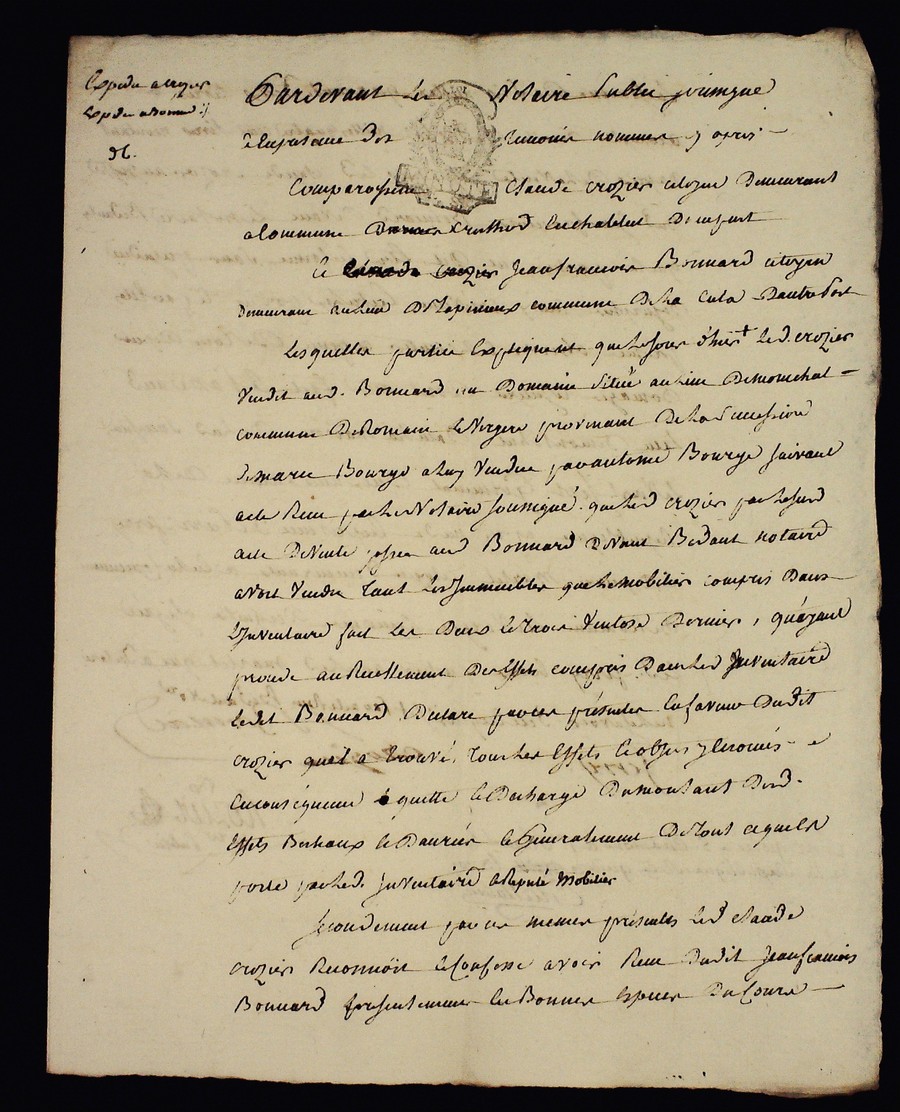 Expedie a crozier
Expedie a Bonnard
Pardevant Le Notaire Public soussigné
et en presence des temoins nommes cy apres
MINUTE
Comparoissent Claude Crozier citoyen Demeurant
a la Commune en chablais Departt
Et Jean francois Bonnard citoyen
Demeurant au lieu commune De La Cula
Lesquelles parties Expliquent que le jour d'hier + Le d. Crozier
Vendit aud. Bonnard un Domaine Situé au lieu De monchal
commune De Romain Le Vergere provenant De La Succession
De marie Bourge a luy Vendue par antoine Bourge suivant
acte Recu par Le Notaire soussigné. que Led Crozier par le susd
acte De Vente passé aud Bonnard Devant Bedant notaire
avoit Vendu Tant Les Immeubles que Le mobilier compris Dans
L'Inventaire fait Les Deux Et trois Ventose Dernier, qu'ayant
procede au Recollement Des Effets compris Dans Led Inventaire
Ledit Bonnard Declare par ces présentes En faveur Dudit
Crozier qu'il a trouvé, tous Les Effets Et objets y Enoncés
En consequence quitte Et Decharge Du montant Desd.
Effets Bestiaux Et Denrées Et Generalement De tout ce qui Est
porté par Led. Inventaire a Reputé Mobilier
Secondement par ces memes présentes Led Claude
Crozier Reconnoit Et Confesse avoir Recu Dudit Jean francois
Bonnard presentement En Bonnes Especes Du Cours